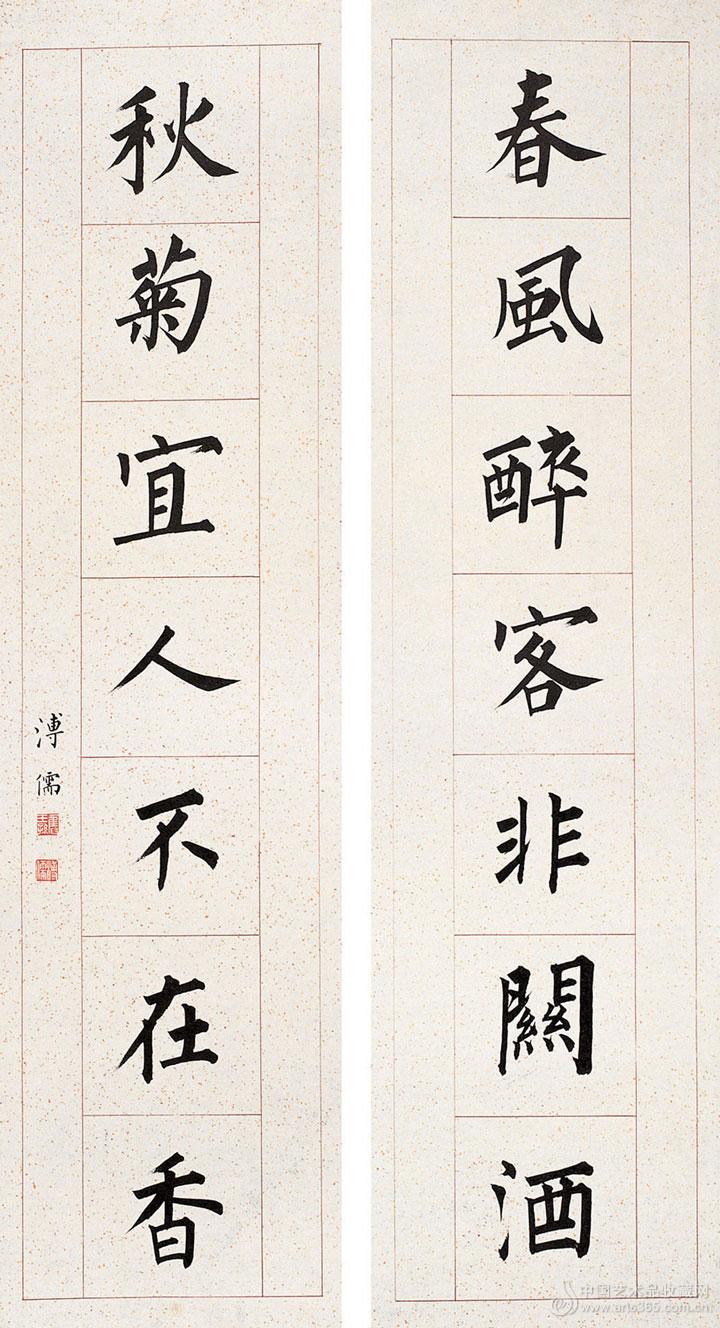 春風醉客非關酒
秋菊宜人不在香
溥儒
中国艺术品收藏网
www.arts365.com.cn